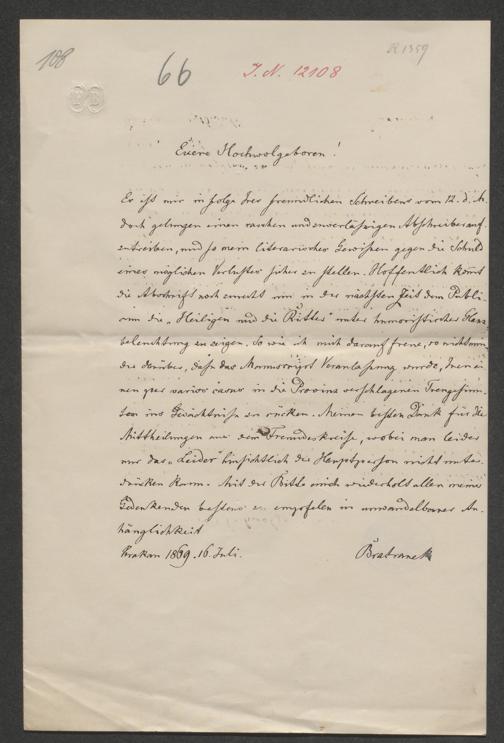 108
66
J. N. 12108
R 1359
Euere Hochwolgeboren!
Es ist mir in folge Ires freundlichen Schreibens vom 12. d. M.
doch gelungen einen raschen und zuverlässigen Abschreiber auf-
zutreiben, und so mein literarisches Gewissen gegen die Schuld
eines möglichen Verlustes sicher zu stellen. Hoffentlich kommt
die Abschrift noch zurecht um in der nächsten Zeit dem Publi-
cum die „Heiligen und die Ritter" unter humoristischer
beleuchtung zu zeigen. So wie ich mich darauf freue, so nicht
der darüber, daß das Manuscript Veranlassung wurde, Inen ei-
nen per varios casus in die Provinz verschlagenen
ten ins Gedächtniß zu rücken. Meinen besten Dank für die
Mittheilungen aus dem Freundeskreise, wobei man leider
nur das „Leider" hinsichtlich der Hauptperson nicht unter-
drücken kann. Mit der Bitte mich wiederholt allen meiner
Gedenkenden bestens zu empfelen in unwandelbarer An-
hänglichkeit
Krakau 1869. 16 Juli.
Bratranek